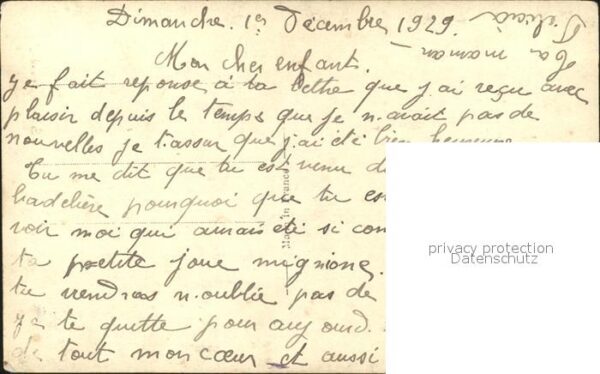 Dimanche. 1er Décembre 1929.
Ta maman
Mon cher enfant.
ye fait reponse à ta lettre que j'ai reçu avec
plaisir depuis le temps que je n'avait pas de
nouvelles je t'assur que j'ai été bien heureuse
Tu me dit que tu est venu
pourquoi que tu
voir moi qui aurais été si
ta petite joue mignione.
tu viendras n'oublie pas de
ye te quitte pour aujourd.
de tout mon cœur et aussi
Made in France
privacy protection
Datenschutz